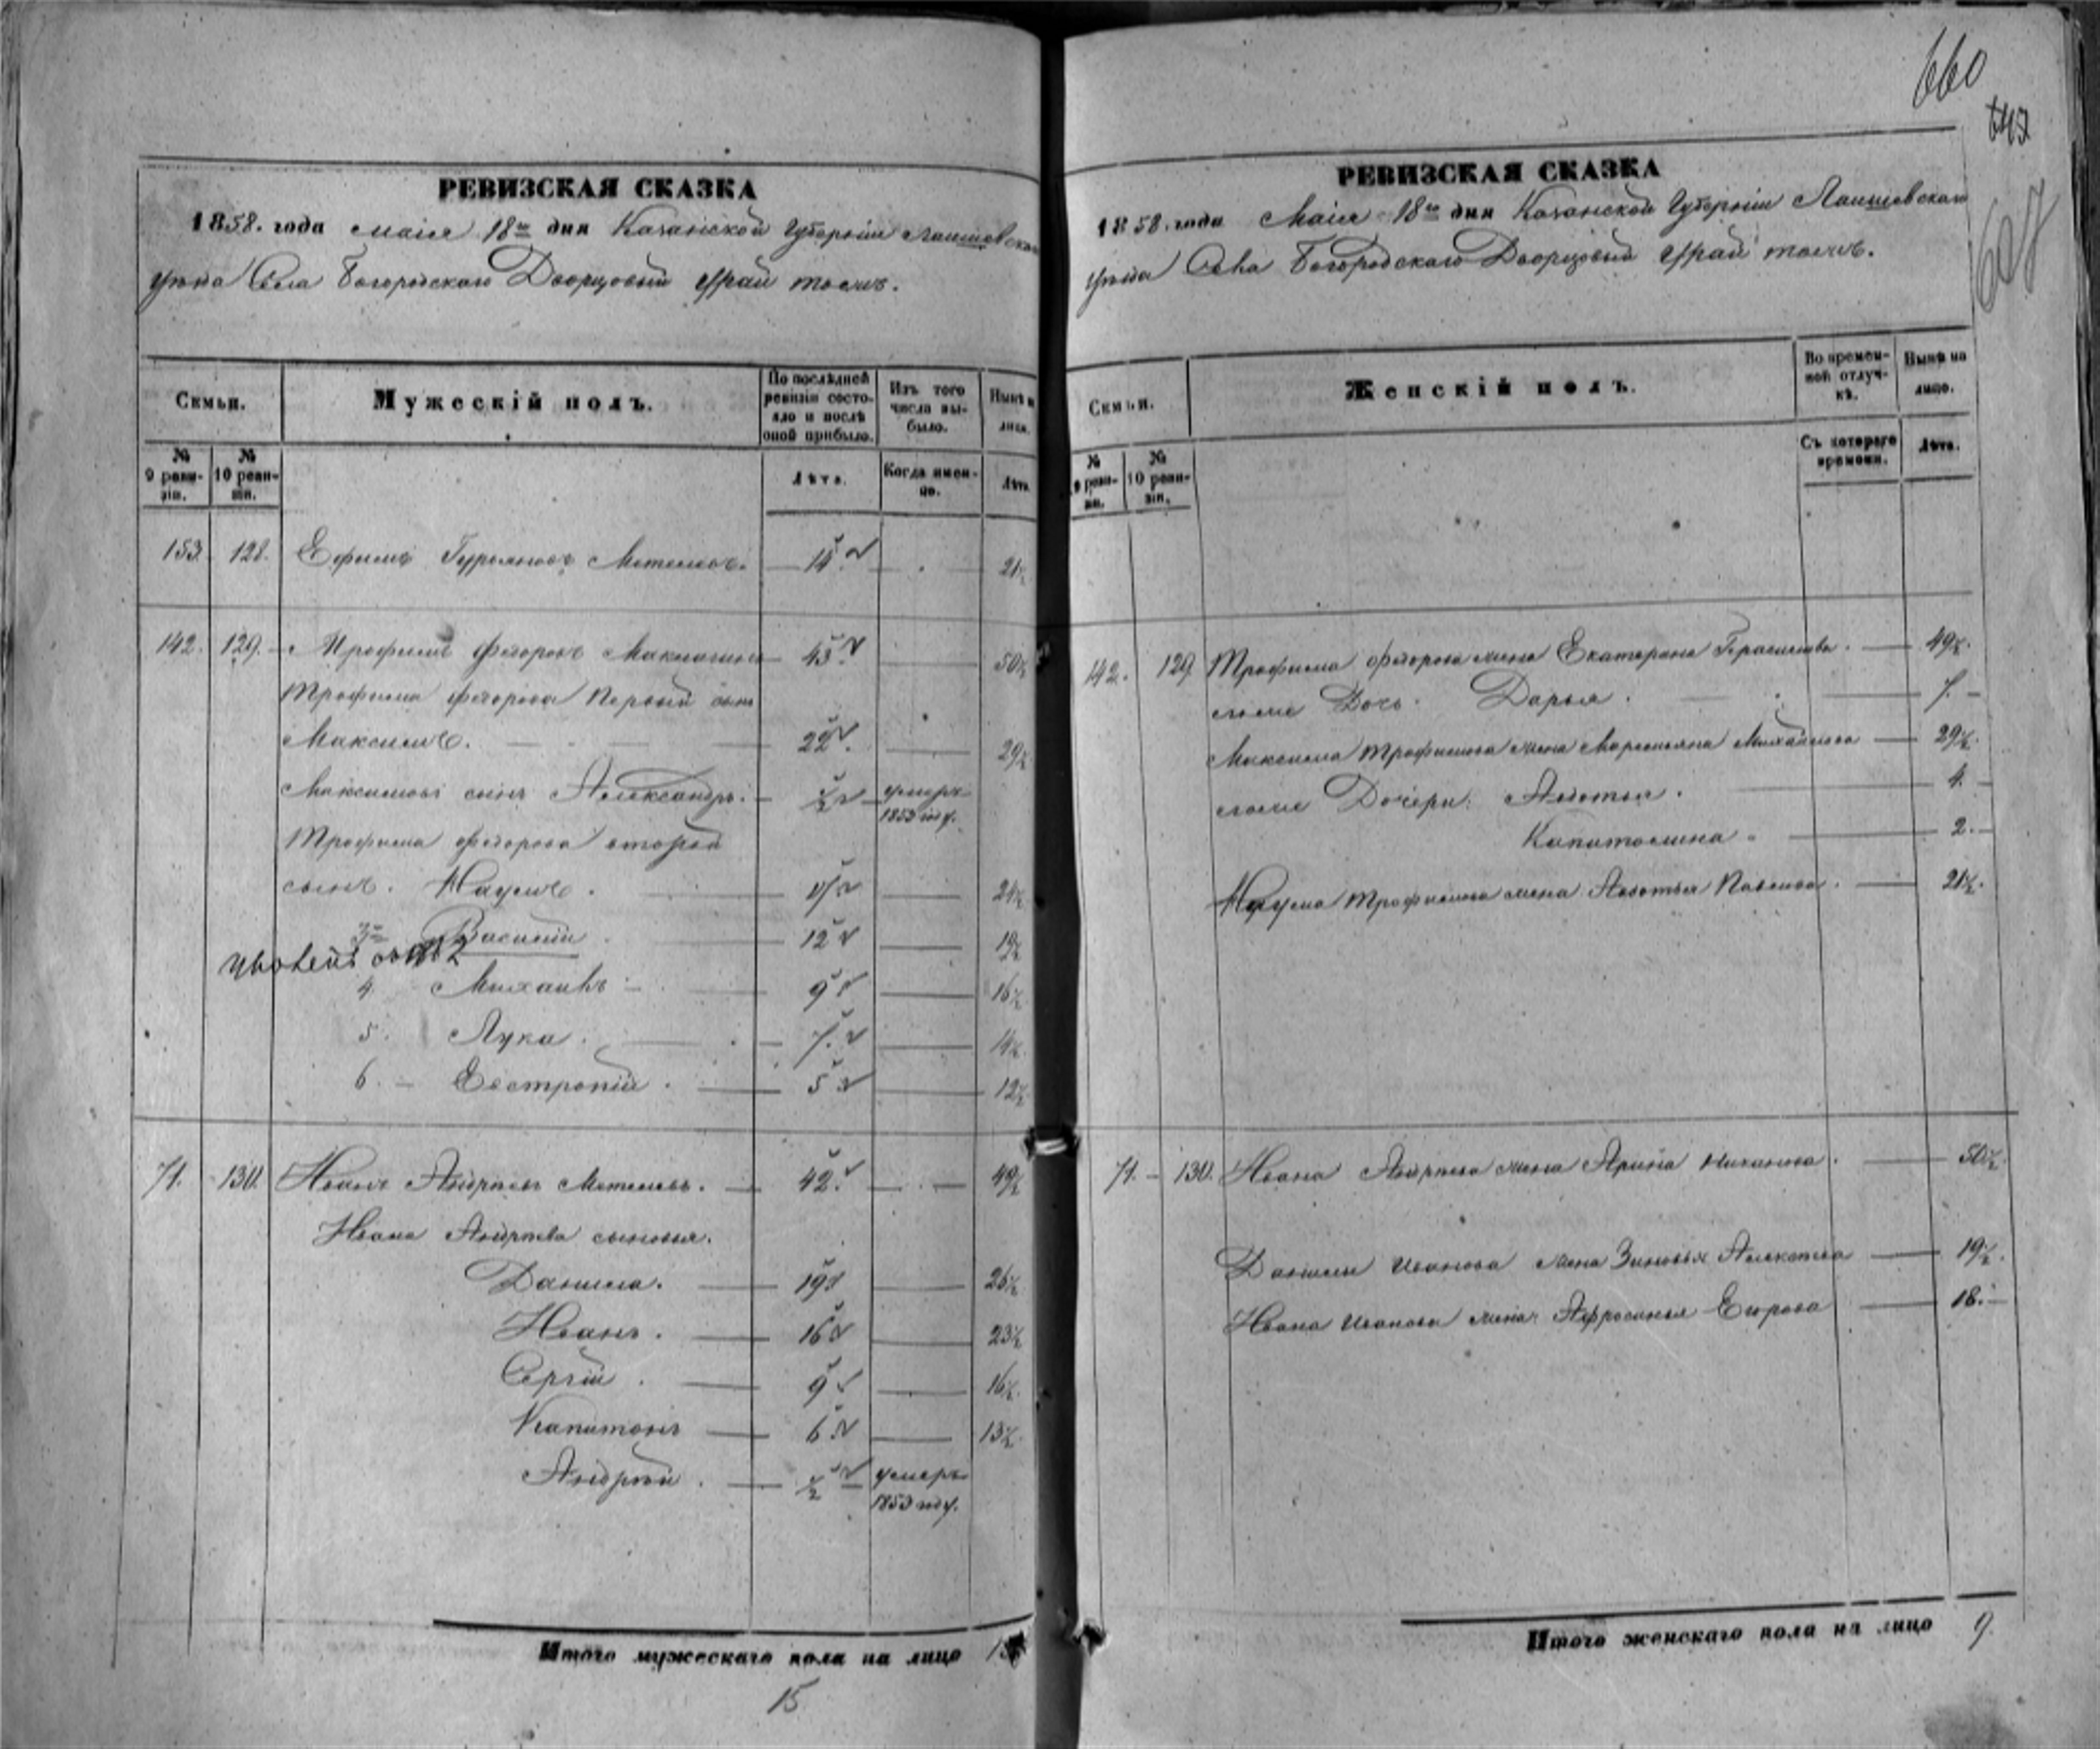 660
647
607
РЕВИЗСКАЯ СКАЗКА
1858. года маія 18го дня Казанской Губерніи Лаишевскаго
уѣзда Села Богородскаго Дворцовый Урай тожъ.
Семьи.
Мужескій полъ.
По послѣдней ревизіи состояло и послѣ оной прибыло.
Изъ того числа выбыло.
Нынѣ на лицо.
№ 9 ревизіи.
№ 10 ревизіи.
Лѣта.
Когда именно.
Лѣта.
153. 128. Ефимъ Гурьяновъ 14 21½
142. 129. Трофимъ Федоровъ 43 50½
Трофима Федорова Первый сынъ
Максимъ. 22 29½
Максимовъ сынъ Александръ. ½ умеръ 1853 году.
Трофима Федорова второй
сынъ. Наумъ. 17 24½
3й Василій 12 19½
4. Михаилъ 9 16½
5. Лука. 7. 14½
6. Евстропій. 5 12½
71. 130. Иванъ Андреевъ 42. 49½
Ивана Андреева сыновья.
Данила. 19 26½
Иванъ. 16 23½
Сергій. 9 16½
Капитонъ 6 13½
Андрей. ½ умеръ 1853 году.
Итого мужескаго пола на лицо
15
РЕВИЗСКАЯ СКАЗКА
1858. года Маія 18го дня Казанской Губерніи Лаишевскаго
уѣзда Села Богородскаго Дворцовый Урай тожъ.
Семьи.
Женскій полъ.
Во временной отлучкѣ.
Нынѣ на лицо.
№ 9 ревизіи.
№ 10 ревизіи.
Съ котораго времени.
Лѣта.
142. 129. Трофима Федорова жена Екатерина Герасимова. 49½
Дочь. Дарья. 7.
Максима Трофимова жена Маремьяна Михайлова 29½
Дочери: Авдотья. 4.
Капитолина 2.
Наума Трофимова жена Авдотья Павлова. 21½
71. 130. Ивана Андреева жена Арина 50½
Данилы Иванова жена Зиновья 19½
Ивана Иванова жена Афросинья Егорова 18.
Итого женскаго пола на лицо 9.